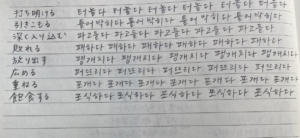 打ち明ける 터놓다 터놓다 터놓다 터놓다 터놓다 터놓다
引きこもる 틀어박히다 틀어박히다 틀어박히다
深く入り込む 파고들다 파고들다 파고들다 파고들다
敗れる 패하다 패하다 패하다 패하다 패하다 패하다
放り出す 팽개치다 팽개치다 팽개치다 팽개치다
広める 퍼뜨리다 퍼뜨리다 퍼뜨리다 퍼뜨리다
重ねる 포개다 포개다 포개다 포개다 포개다 포개다
飽食する 포식하다 포식하다 포식하다 포식하다